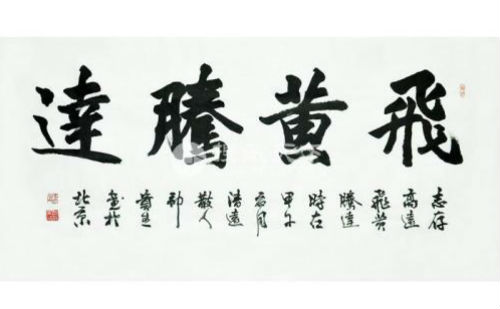 飛黄騰達
志存
高遠
飛黄
騰達
時在
甲午
月
清遠
散人
生
書於
北京